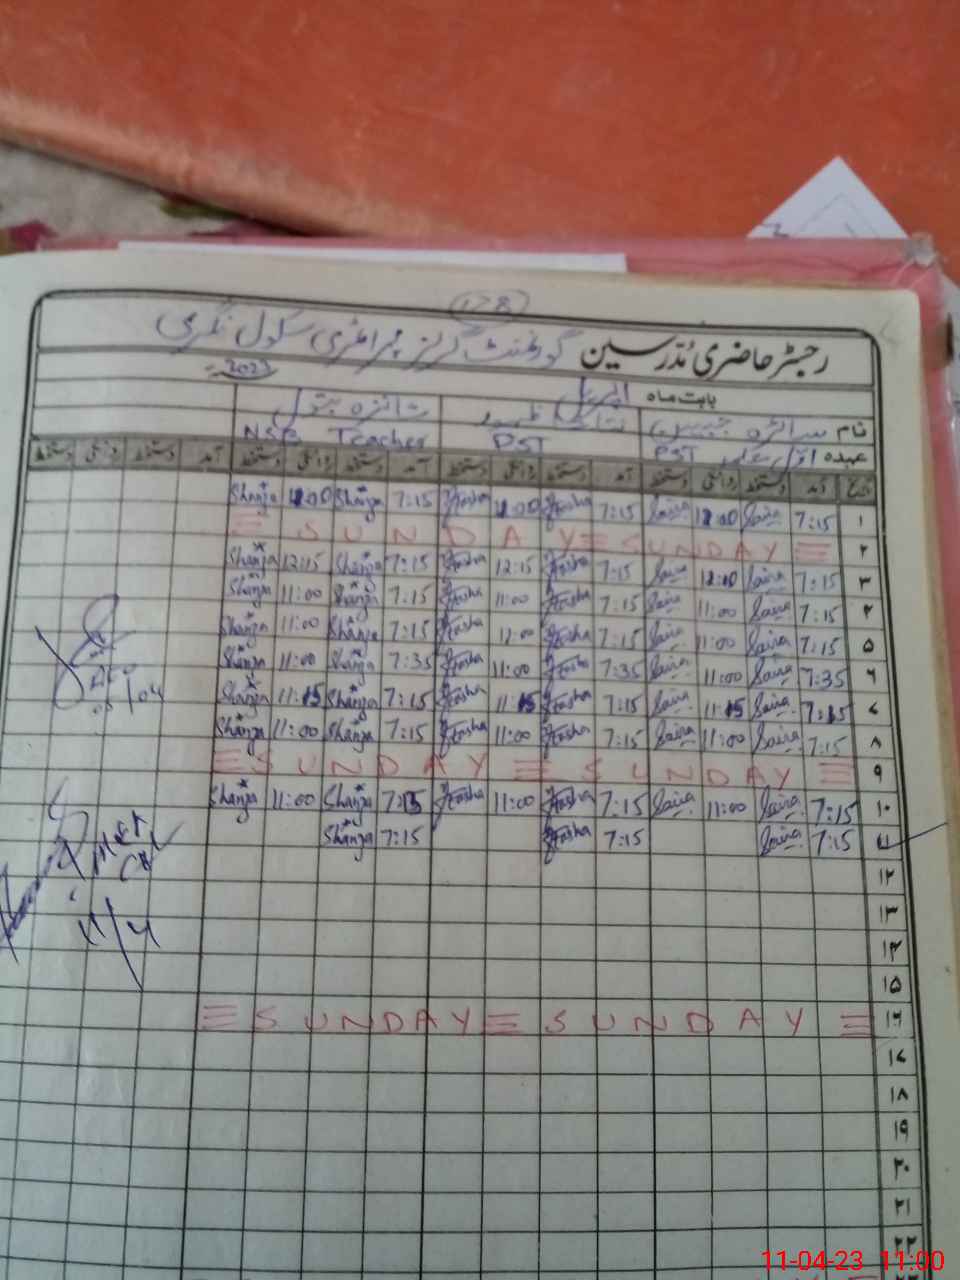 128
رجسٹر حاضری مدرسین گورنمنٹ گرلز پرائمری سکول نگری
بابت ماہ اپریل 2023
نام سائرہ شائزہ بتول
عہدہ PST PST NSB Teacher
تاریخ آمد دستخط روانگی دستخط آمد دستخط روانگی دستخط آمد دستخط روانگی دستخط آمد دستخط روانگی دستخط
۱ 7:15 Saira 12:00 Saira 7:15 Itasha 12:00 Itasha 7:15 Shanza 12:00 Shanza
۲ SUNDAY SUNDAY
۳ 7:15 Saira 12:10 Saira 7:15 Itasha 12:15 Itasha 7:15 Shanza 12:15 Shanza
۴ 7:15 Saira 11:00 Saira 7:15 Itasha 11:00 Itasha 7:15 Shanza 11:00 Shanza
۵ 7:15 Saira 11:00 Saira 7:15 Itasha 12:00 Itasha 7:15 Shanza 11:00 Shanza
۶ 7:35 Saira 11:00 Saira 7:35 Itasha 11:00 Itasha 7:35 Shanza 11:00 Shanza
۷ 7:15 Saira 11:15 Saira 7:15 Itasha 11:15 Itasha 7:15 Shanza 11:15 Shanza
۸ 7:15 Saira 11:00 Saira 7:15 Itasha 11:00 Itasha 7:15 Shanza 11:00 Shanza
۹ SUNDAY SUNDAY
۱۰ 7:15 Saira 11:00 Saira 7:15 Itasha 11:00 Itasha 7:15 Shanza 11:00 Shanza
۱۱ 7:15 Saira 7:15 Itasha 7:15 Shanza
۱۲
۱۳
۱۴
۱۵
۱۶ SUNDAY SUNDAY
۱۷
۱۸
۱۹
۲۰
۲۱
۲۲
AEO
05/04
11/4
11-04-23 11:00